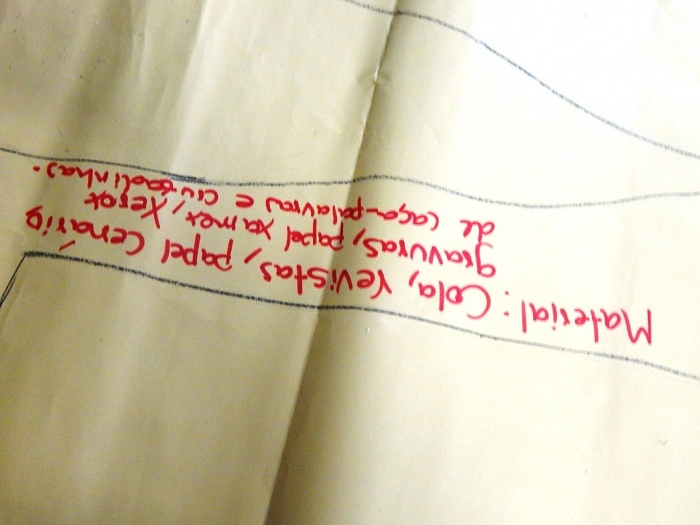 Material: Cola, revistas, papel Cenário
gravuras, papel xamex, Xerox
de caça-palavras e cruzadinhas.